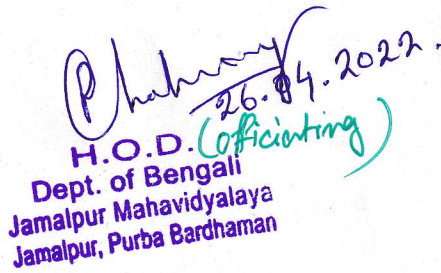 26.04.2022.
H.O.D. (officiating)
Dept. of Bengali
Jamalpur Mahavidyalaya
Jamalpur, Purba Bardhaman